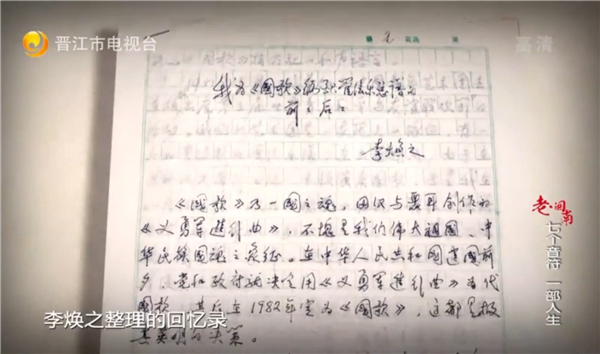 晋江市电视台
高清
我为《国歌》编配管弦乐总谱的
前々后々
李焕之
《国歌》乃一国之魂,田汉与聂耳创作的
《义勇军进行曲》,不愧是我们伟大祖国、中
华民族国魂之象征。在中华人民共和国建国前
夕,党和政府就决定用《义勇军进行曲》为代
国歌,其后在1982年定为《国歌》,这都是极
其英明的决策。
老·闽南
七个音符 一部人生
李焕之整理的回忆录